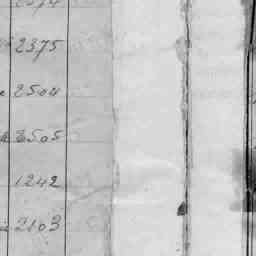 2375
2504
3505
1242
2103